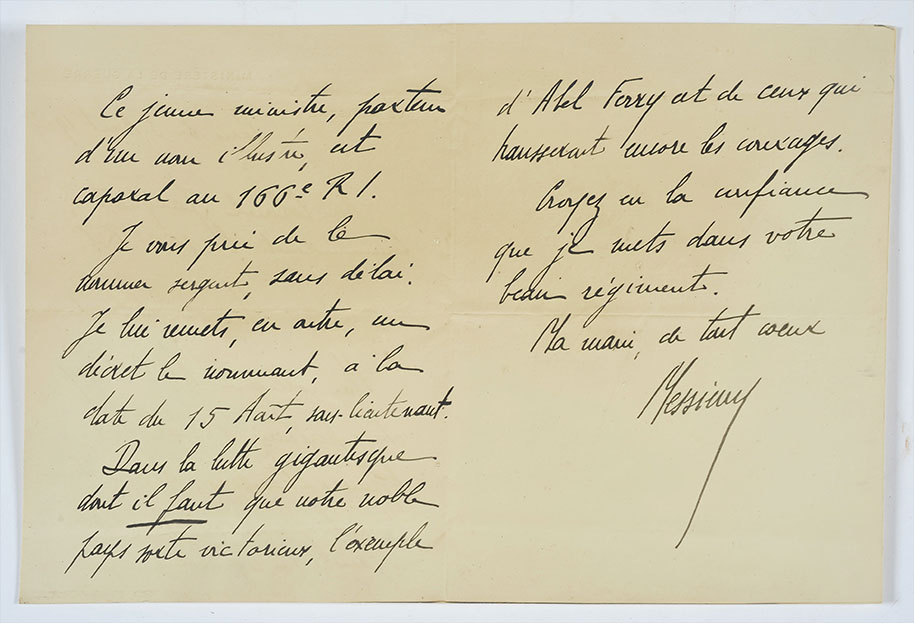 Ce jeune ministre, porteur
d'un nom illustre, est
caporal au 166e R I.
Je vous prie de le
nommer sergent, sans délai.
Je lui remets, en outre, un
décret le nommant, à la
date du 15 Août, sous-lieutenant.
Dans la lutte gigantesque
dont il faut que notre noble
pays sorte victorieux, l'exemple
d'Abel Ferry et de ceux qui
hausseront encore les courages.
Croyez en la confiance
que je mets dans votre
beau régiment.
La main, de tout coeur
Messimy